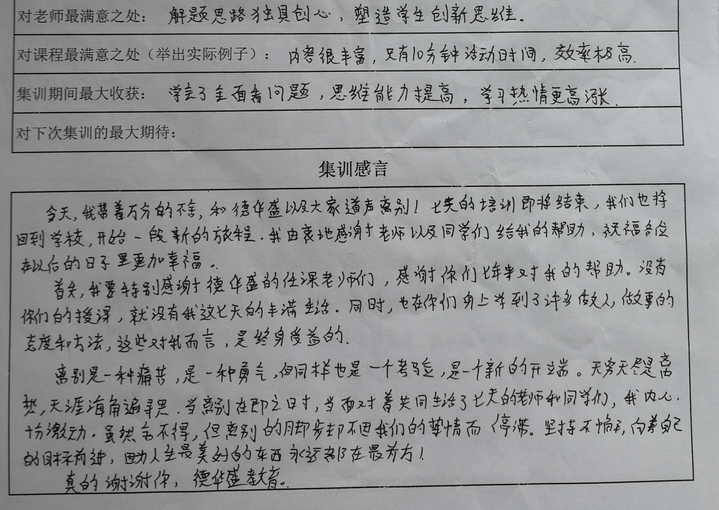 对老师最满意之处： 解题思路独具创心，塑造学生创新思维。
对课程最满意之处（举出实际例子）： 内容很丰富，只有10分钟活动时间，效率极高.
集训期间最大收获： 学会了全面看问题，思维能力提高，学习热情更高涨.
对下次集训的最大期待：
集训感言
今天，我带着万分的不舍，和德华盛以及大家道声离别！七天的培训即将结束，我们也将
回到学校，开始一段新的旅程.我由衷地感谢老师以及同学们给我的帮助，祝福各位
在以后的日子里更加幸福。
首先，我要特别感谢德华盛的任课老师们，感谢你们七年来对我的帮助。没有
你们的授课，就没有我这七天的丰满生活。同时，也在你们身上学到了许多做人，做事的
态度和方法，这些对我而言，是终身受益的.
离别是一种痛苦，是一种勇气，但同样也是一个考验，是一个新的开端。天穷无尽是离
愁，天涯海角遍寻思.当离别在即之日时，当面对着共同生活了七天的老师和同学们，我内心
十分激动.虽然舍不得，但离别的脚步却不因我们的挚情而停滞。坚持不懈，向着自己
的目标前进，因为人生最美好的东西永远都在最前方！
真的谢谢你，德华盛教育。